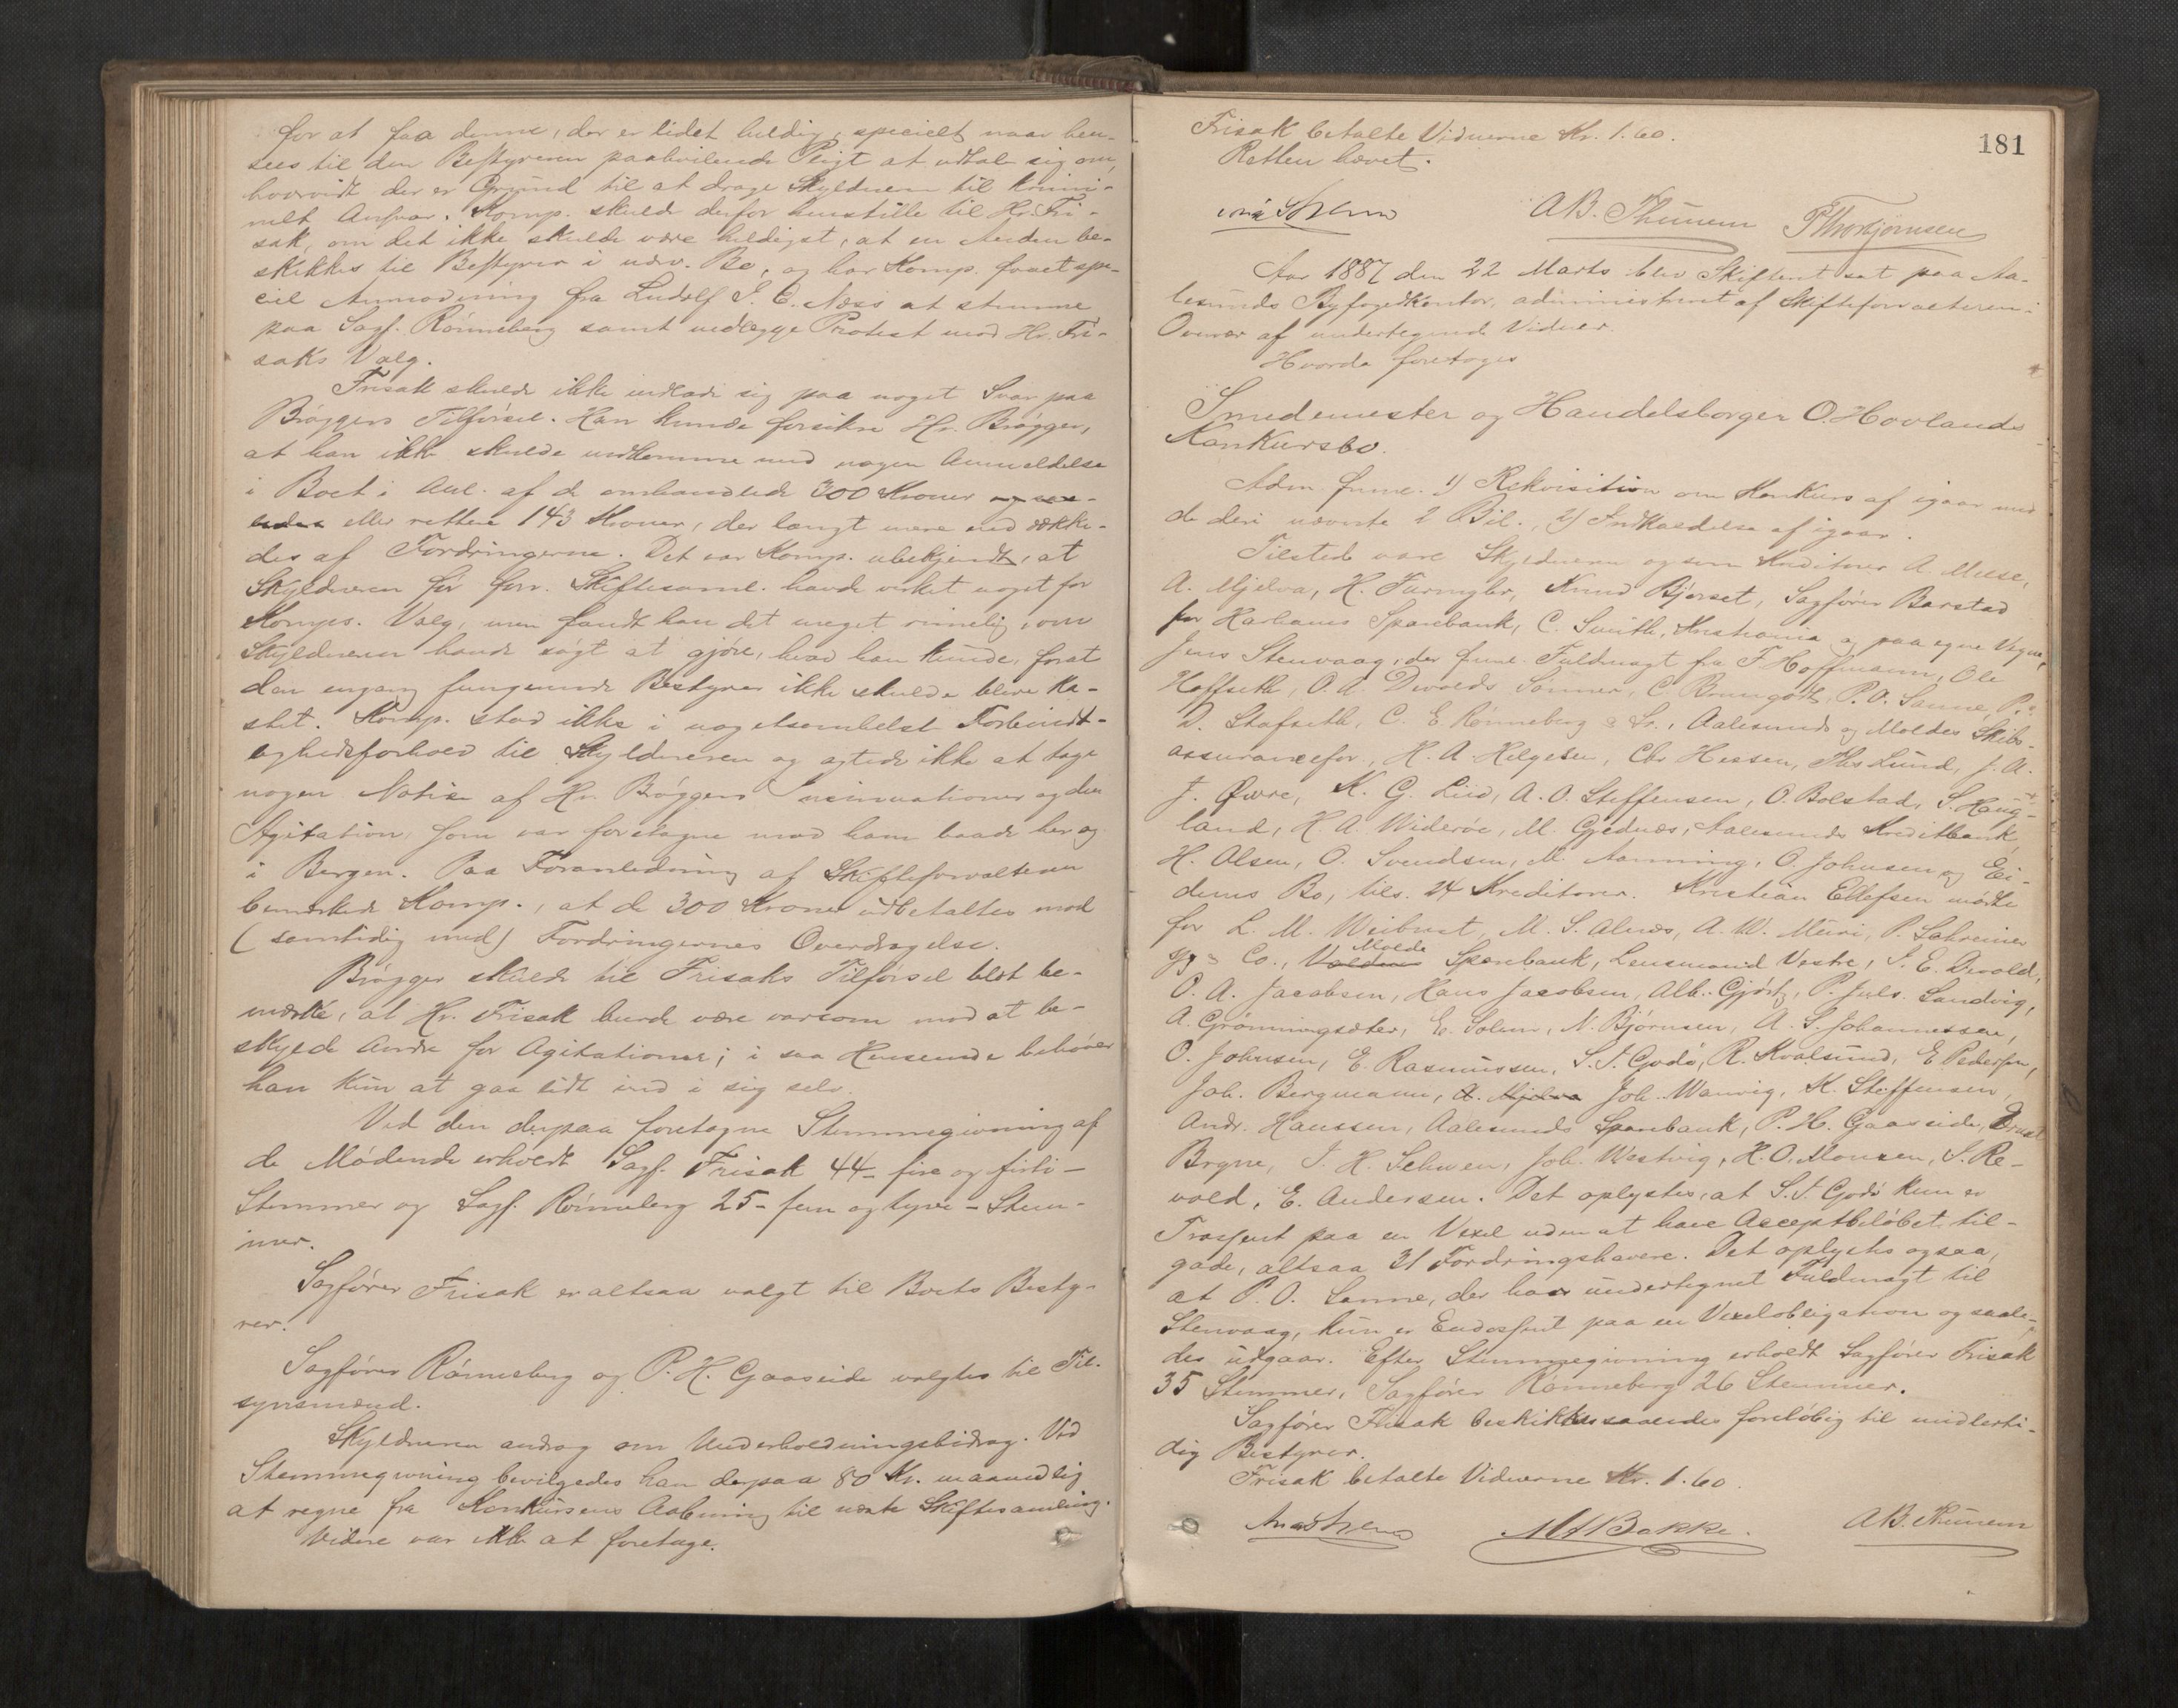 for at faa denne, der er lidet heldig, specielt naar hen-
sees til den Bestyreren paahvilende Pligt at udtale sig om,
hvorvidt der er Grund til at drage Skyldneren til krimi-
nelt Ansvar. Komp. skulde derfor henstille til Hr. Fri-
sak, om det ikke skulde være heldigst, at en Anden be-
skikkes til Bestyrer i nærv. Bo, og har Komp. faaet spe-
ciel Anmodning fra Ludolf J. C. Næss at stemme
paa Sagf. Rönneberg samt nedlægge Protest mod Hr. Fri-
saks Valg.
Frisak skulde ikke indlade sig paa noget Svar paa
Bröggers Tilförsel. Han kunde forsikre Hr. Brögger,
at han ikke skulde indkomme med nogen Anmeldelse
i Boet i Anl. af de omhandlede 300 Kroner
eller rettere 143 Kroner, der langt mere end dække-
des af Fordringerne. Det var Komp. ubekjendt, at
Skyldneren för forr. Skiftesaml. havde virket noget for
Komps. Valg, men fandt han det meget rimelig, om
Skyldneren havde sögt at gjöre, hvad han kunde, forat
den engang fungerende Bestyrer ikke skulde blive ka-
stet. Komp. stod ikke i nogetsomhelst Forbindt-
lighedsforhold til Skyldneren og agtede ikke at tage
nogen Notice af Hr. Bröggers insinuationer og den
Agitation, som var foretagne mod ham baade her og
i Bergen. Paa Foranledning af Skifteforvalteren
bemærkede Komp., at de 300 Kroner udbetaltes mod
(samtidig med) Fordringernes Overdragelse.
Brögger skulde til Frisaks Tilförsel blot be-
mærke, at Hr. Frisak burde være varsom med at be-
skylde Andre for Agitationer; i saa Henseende behöver
han kun at gaa lidt ind i sig selv.
Ved den derpaa foretagne Stemmegivning af
de Mödende erholdt Sagf. Frisak 44 - fire og firti -
Stemmer og Sagf. Rönneberg 25 - fem og tyve - Stem-
mer.
Sagförer Frisak er altsaa valgt til Boets Besty-
rer.
Sagförer Rönneberg og P. H. Gaaseide valgtes til Til-
synsmænd.
Skyldneren androg om Underholdningsbidrag. Ved
Stemmegivning bevilgedes han derpaa 80 Kr. maanedlig
at regne fra Konkursens Aabning til næste Skiftesamling.
Videre var ikke at foretage.
181
Frisak betalte Vidnerne Kr. 1.60.
Retten hævet.
AB. Thunem PThorbjörnsen
Aar 1887 den 22 Marts blev Skifteret sat paa Aa-
lesunds Byfogedkontor, administreret af Skifteforvalteren i
Overvær af undertegnede Vidner.
Hvorda foretoges
Smedemester og Handelsborger O. Hovlands
Konkursbo.
Adm. freml. 1) Rekvisition om Konkurs af igaar med
de deri nævnte 2 Bil., 2) Indkaldelse af igaar.
Tilstede vare Skyldneren og som Kreditorer A. Melse,
A. Mjelva, H. Furmyhr, Knud Bjerset, Sagförer Barstad
for Harhams Sparebank, C. Smith, Kristiania og paa egne Vegne,
Jens Stenvaag, der freml. Fuldmagt fra F. Hoffmann, Ole
Hoffseth, O. A. Devolds Sönner, C. Bromgoth, P. O. Sanne, P.
D. Stafseth, C. E. Rönneberg & Sr., Aalesunds og Moldes Skibs-
assuranceför., H. A. Helgesen, Chr Hessen, Ths Lund, J. A.
J. Övre, K. G. Liid, A. O. Steffensen, O. Bolstad, S. Haug-
land, H. A. Wideröe, M. Gjednæs, Aalesunds Kreditbank,
H. Olsen, O. Svendsen, M. Aanning, O. Johnsen og Ei-
dems Bo, tils. 24 Kreditorer. Kristian Ellefsen mödte
for L. M. Weibust, M. S. Alnæs, A. W. Muri, P. Schreiner
& Co., Molde Sparebank, Lensmand Vestre, J. E. Devold,
O. A. Jacobsen, Hans Jacobsen, Alb. Gjörtz, P. Juls. Sandvig,
A. Grönningsæter, E. Solem, N. Björnsen, A. S. Johannessen,
O. Johnsen, E. Rasmussen, S. J. Godö, R. Kvalsund, E Pedersen,
Joh. Bergmann, A. Mjelva Joh. Wanvig, K. Steffensen,
Andr. Hanssen, Aalesunds Sparebank, P. H. Gaaseide, Knut
Brgne, J. H. Schwen, Joh. Westvig, H. O. Monsen, S. Re-
vold, E. Andersen. Det oplystes, at S. J. Godö kun er
Trassent paa en Vexel uden at have Acceptbelöbet til-
gode, altsaa 31 Fordringshavere. Det oplystes ogsaa,
at P. O. Sanne, der har undertegnet Fuldmagt til
Stenvaag, kun er Endossent paa en Vexelobligation og saale-
des udgaar. Efter Stemmegivning erholdt Sagförer Frisak
35 Stemmer, Sagförer Rönneberg 26 Stemmer.
Sagförer Frisak beskikkes saaledes forelöbig til midlerti-
dig Bestyrer.
Frisak betalte Vidnerne Kr. 1.60.
Bakke. AB. Thunem